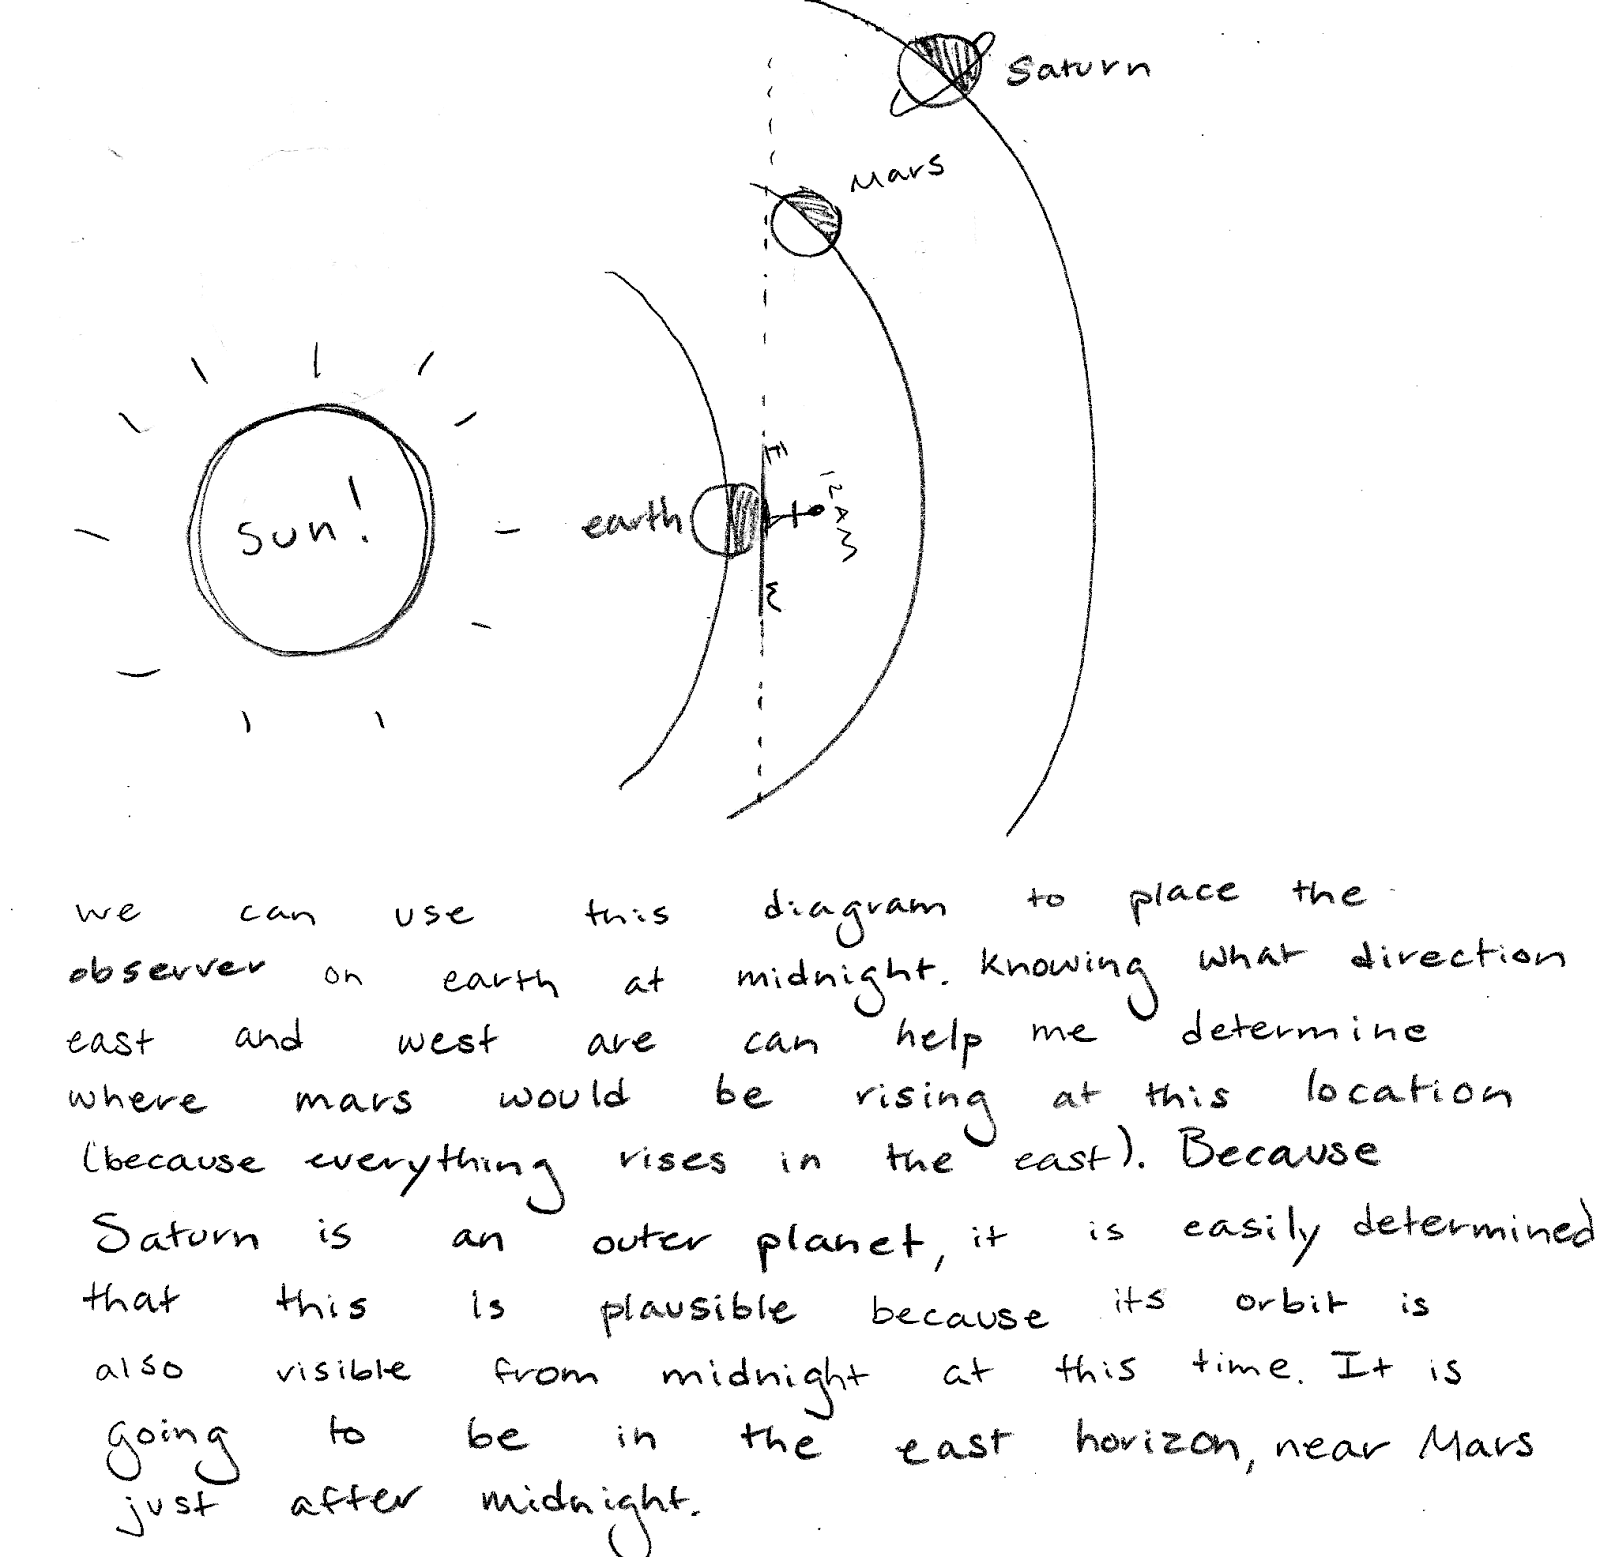 Saturn
Mars
sun!
earth
E
12AM
W
we can use this diagram to place the
observer on earth at midnight. Knowing what direction
east and west are can help me determine
where mars would be rising at this location
(because everything rises in the east). Because
Saturn is an outer planet, it is easily determined
that this is plausible because its orbit is
also visible from midnight at this time. It is
going to be in the east horizon, near Mars
just after midnight.